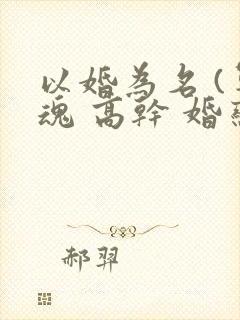 以婚為名(
魂 高幹 婚
郝羿